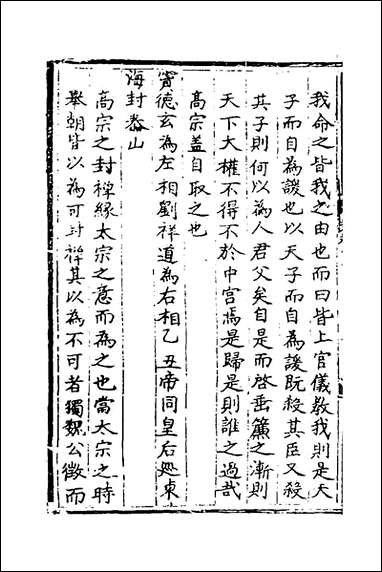 我命之皆我之由也而曰皆上官儀教我則是天
子而自為諼也以天子而自為諼既殺其臣又殺
其子則何以為人君父矣自是而啓垂簾之漸則
天下大權不得不於中宮焉是歸是則誰之過哉
高宗蓋自取之也
竇德玄為左相劉祥道為右相乙丑帝同皇后廵東
海封泰山
高宗之封禪緣太宗之意而為之也當太宗之時
舉朝皆以為可封禪其以為不可者獨魏公徵而